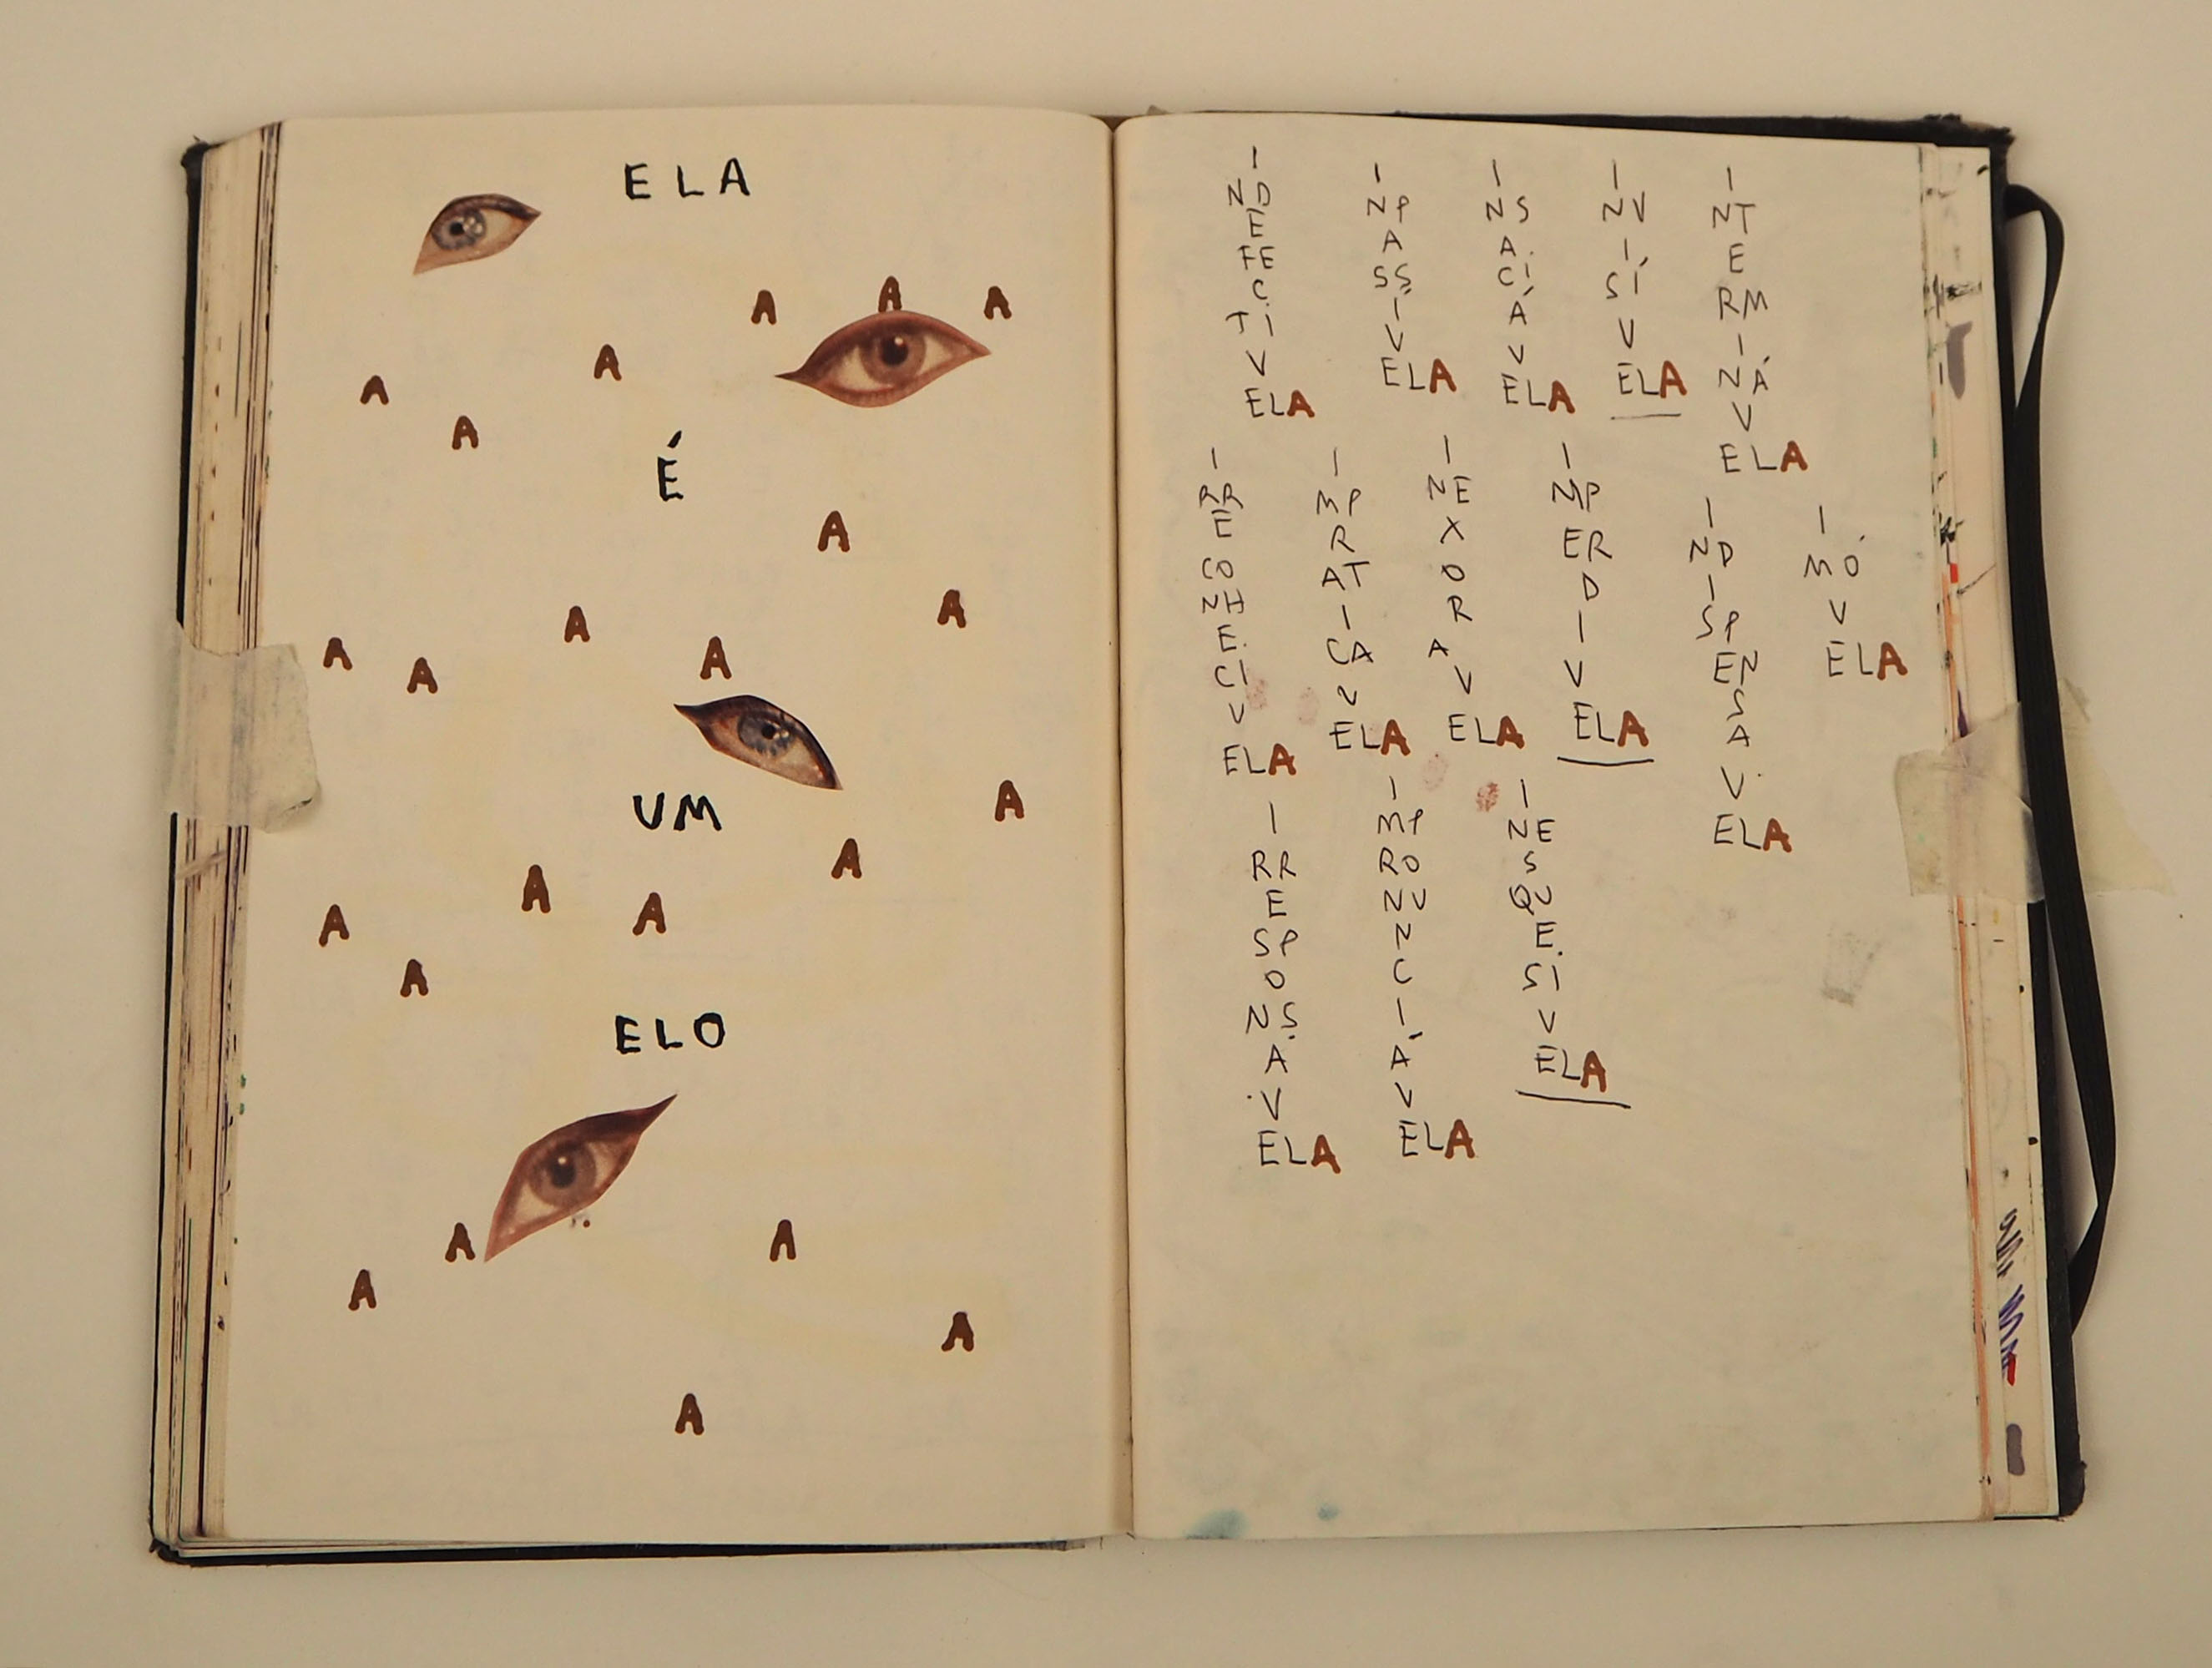 ELA
A A A
A
A
A
É
A
A
A
A
A
A
UM
A
A
A
A
A
A
ELO
A
A
A
A
A
I
ND
E
FE
C
TI
V
ELA
I
NP
A
SS
Í
V
ELA
I
NS
A
CI
Á
V
ELA
I
NV
I
SÍ
V
ELA
I
NT
E
RM
I
NÁ
V
ELA
I
RR
E
CO
NH
E
CÍ
V
ELA
I
MP
R
AT
I
CA
V
ELA
I
NE
X
O
R
A
V
ELA
I
MP
ER
D
I
V
ELA
I
ND
I
SP
EN
S
A
V
ELA
I
MÓ
V
ELA
I
RR
E
SP
O
NS
Á
V
ELA
I
MP
RO
NU
N
C
I
Á
V
ELA
I
NE
S
QU
E
CÍ
V
ELA